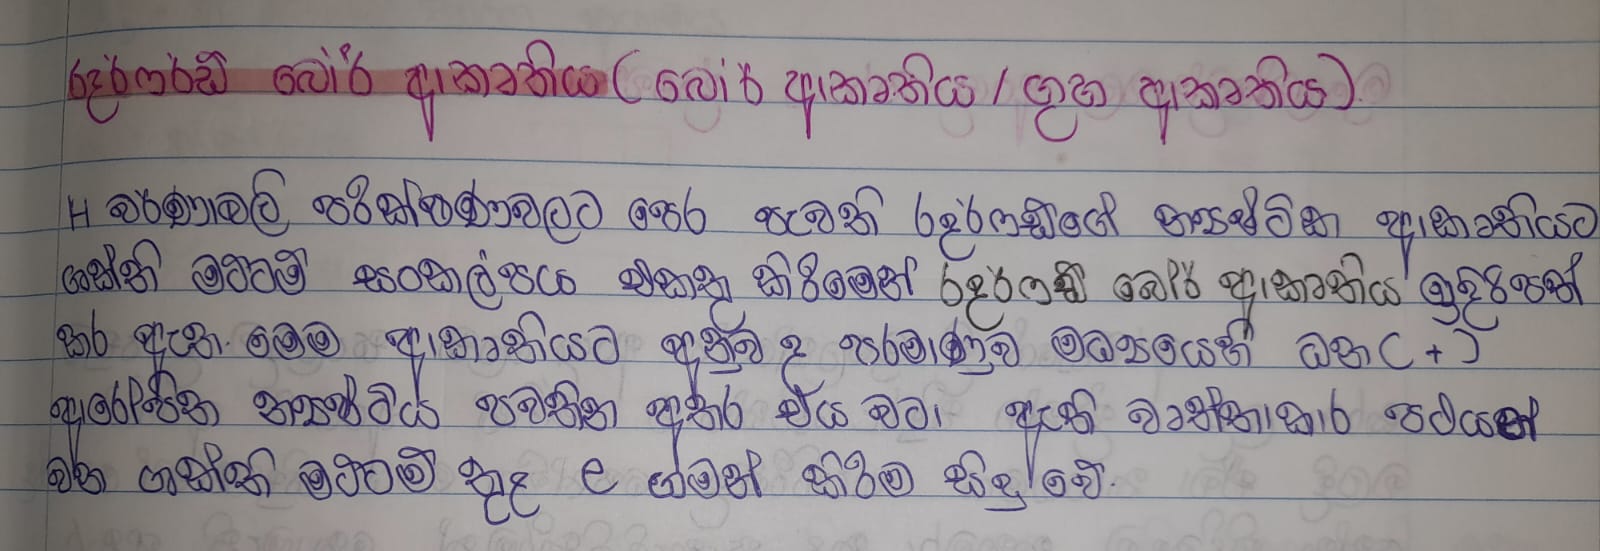 රදර්ෆර්ඩ් බෝර් ආකෘතිය ( බෝර් ආකෘතිය / ග්‍රහ ආකෘතිය ).
H වර්ණාවලි පරික්ෂණවලට පෙර පැවති රදර්ෆඩ්ගේ න්‍යෂ්ටික ආකෘතියට
ශක්ති මට්ටම් සංකල්පය එකතු කිරීමෙන් රදර්ෆඩ් බෝර් ආකෘතිය ඉදිරිපත්
කර ඇත. මෙම ආකෘතියට අනුව ද පරමාණුව මධ්‍යයෙහි ධන ( + )
ආරෝපිත න්‍යෂ්ටිය පවතින අතර එය වටා ඇති වෘත්තාකාර පථයක්
වන ශක්ති මට්ටම් තුල e ගමන් කිරීම සිදු වේ.